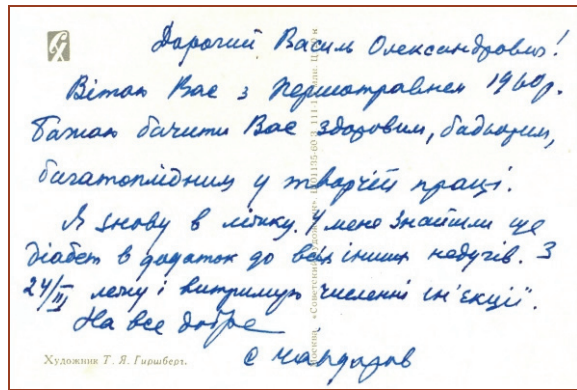 Дорогий Василь Олександрович!
Вітаю Вас з Першотравнем 1960р.
Бажаю бачити Вас здоровим, бадьорим,
багатоплідним у творчій праці.
Я знову в ліжку. У мене знайшли ще
діабет в додаток до всіх інших недугів. З
24/III лежу і витримую численні ін'єкції.
На все добре
С Чапоров
Художник Т. Я. Гиршберг.
Москва «Советский художник».